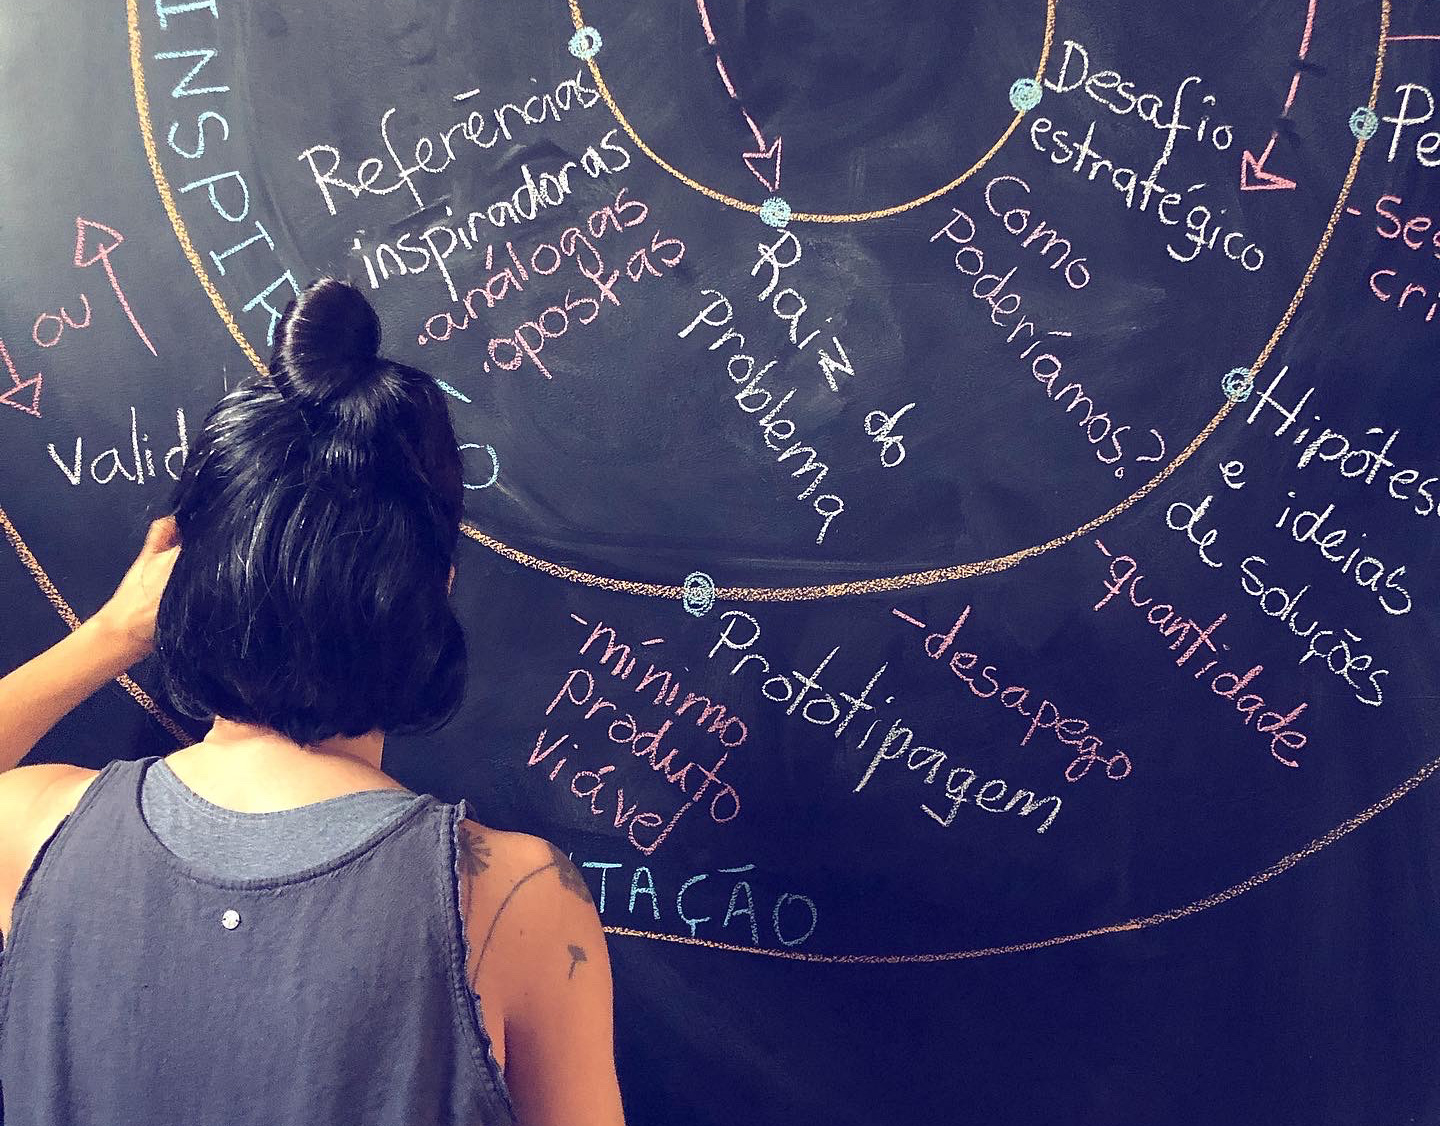 INSPIR
O
Referências
inspiradoras
.análogas
.opostas
Raiz do
Problema
Desafio
estratégico
Como
Poderíamos?
ou
Hipótes
e ideias
de soluções
-quantidade
-desapego
Prototipagem
-mínimo
produto
viável
TAÇÃO